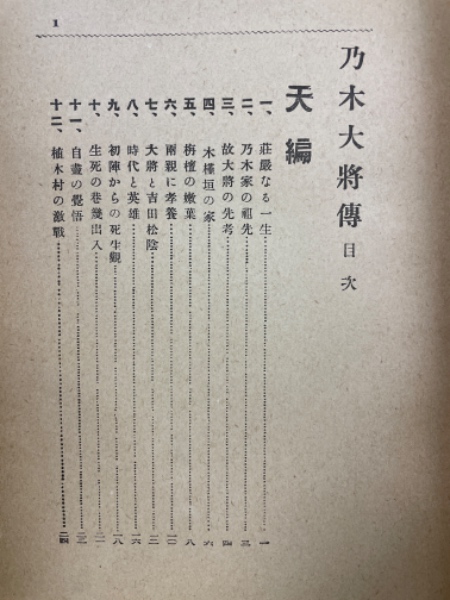 1
乃木大將傳 目次
天編
一、莊嚴なる一生……一
二、乃木家の祖先……三
三、故大將の先考……四
四、木槿垣の家……六
五、栴檀の嫩葉……八
六、兩親に孝養……一〇
七、大將と吉田松陰……一二
八、時代と英雄……一六
九、初陣からの死生觀……一八
十、生死の巷幾出入……二一
十一、自盡の覺悟
十二、植木村の激戰……二四